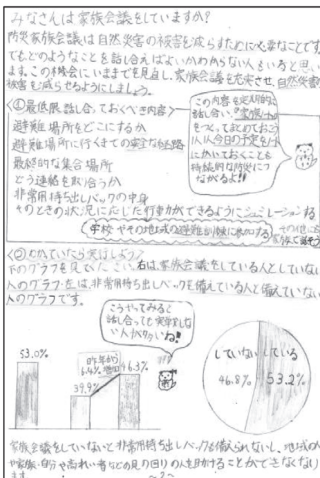 みなさんは家族会議をしていますか?
防災家族会議は自然災害の被害を減らすために必要なことです。
でもどのようなことを話し合えばよいかわからない人もいると思い
ます。この機会にいままでを見直し、家族会議を充実させ、自然災害の
被害を減らせるようにしましょう。
〈①最低限話し合っておくべき内容〉
避難場所をどこにするか
避難場所に行くまでの安全な経路
最終的な集合場所
どう連絡を取り合うか
非常用持ち出しバックの中身
そのときの状況に応じた行動ができるようにシミュレーションする
この内容を定期的に
話し合い、
をつくってまとめておこう
1人1人今日の予定を
にかいておくことも
持続的な防災につ
ながるよ!!
学校やその地域の避難訓練に参加する
〈②
下のグラフを見てください。右は家族会議をしている人としていない
人のグラフ左は、非常用持ち出しバックを備えている人と備えていない
人のグラフです。
こうやってみると
話し合っても実行しない
人が多いね!
53.0%
昨年から
6.4%増加
39.9%
46.3%
していない
46.8%
している
53.2%
家族会議をしていないと非常用持ち出しバックも備えられないし、地域の人
や家族・自分や高れい者などの身の回りの人を助けることができなくなり
ます。
~2~